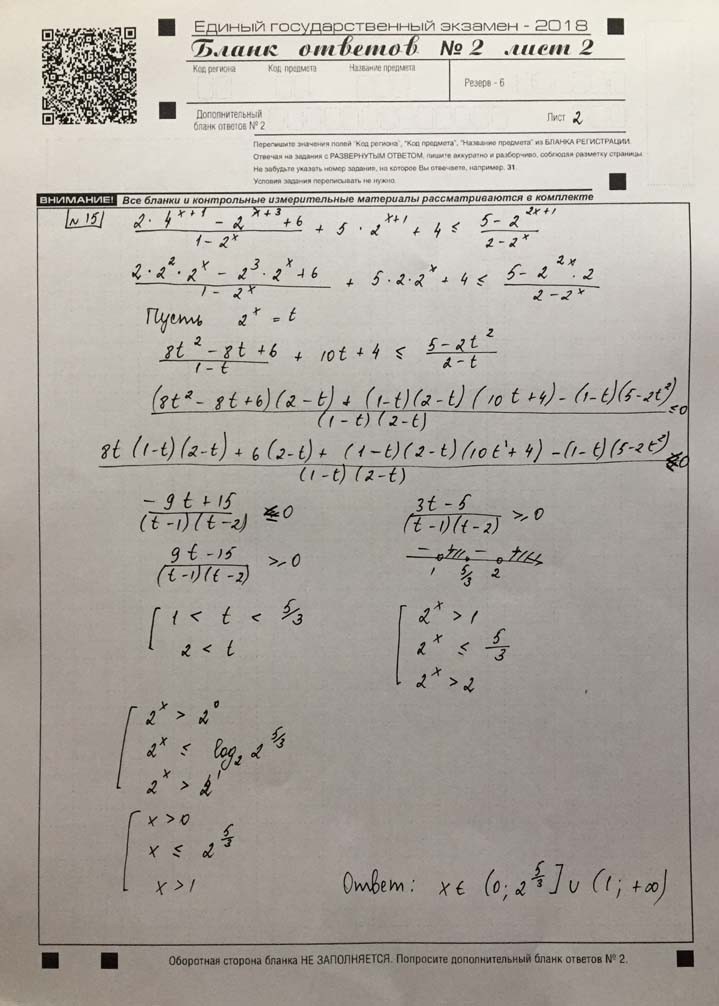 Единый государственный экзамен - 2018
Бланк ответов № 2 лист 2
Код региона Код предмета Название предмета
Резерв - 6
Дополнительный
бланк ответов № 2
Лист 2
Перепишите значения полей "Код региона", "Код предмета", "Название предмета" из БЛАНКА РЕГИСТРАЦИИ.
Отвечая на задания с РАЗВЕРНУТЫМ ОТВЕТОМ, пишите аккуратно и разборчиво, соблюдая разметку страницы.
Не забудьте указать номер задания, на которое Вы отвечаете, например, 31.
Условия задания переписывать не нужно.
ВНИМАНИЕ! Все бланки и контрольные измерительные материалы рассматриваются в комплекте
№ 15 (2 · 4^(x+1) - 2^(x+3) + 6)/(1 - 2^x) + 5 · 2^(x+1) + 4 ≤ (5 - 2^(2x+1))/(2 - 2^x)
(2 · 2² · 2^x - 2³ · 2^x + 6)/(1 - 2^x) + 5 · 2 · 2^x + 4 ≤ (5 - 2^(2x) · 2)/(2 - 2^x)
Пусть 2^x = t
(8t² - 8t + 6)/(1 - t) + 10t + 4 ≤ (5 - 2t²)/(2 - t)
((8t² - 8t + 6)(2 - t) + (1-t)(2-t)(10t+4) - (1-t)(5-2t²))/((1-t)(2-t)) ≤ 0
(8t(1-t)(2-t) + 6(2-t) + (1-t)(2-t)(10t+4) - (1-t)(5-2t²))/((1-t)(2-t)) ≤ 0
(-9t + 15)/((t-1)(t-2)) ≤ 0 (3t - 5)/((t-1)(t-2)) ≥ 0
(9t - 15)/((t-1)(t-2)) ≥ 0 - + - + 1 5/3 2
[ 1 < t < 5/3 [ 2^x > 1
2 < t 2^x ≤ 5/3
2^x > 2
[ 2^x > 2^0
2^x ≤ log₂ 2^(5/3)
2^x > 2^1
[ x > 0
x ≤ 2^(5/3)
x > 1 Ответ: x ∈ (0; 2^(5/3)] ∪ (1; +∞)
Оборотная сторона бланка НЕ ЗАПОЛНЯЕТСЯ. Попросите дополнительный бланк ответов № 2.